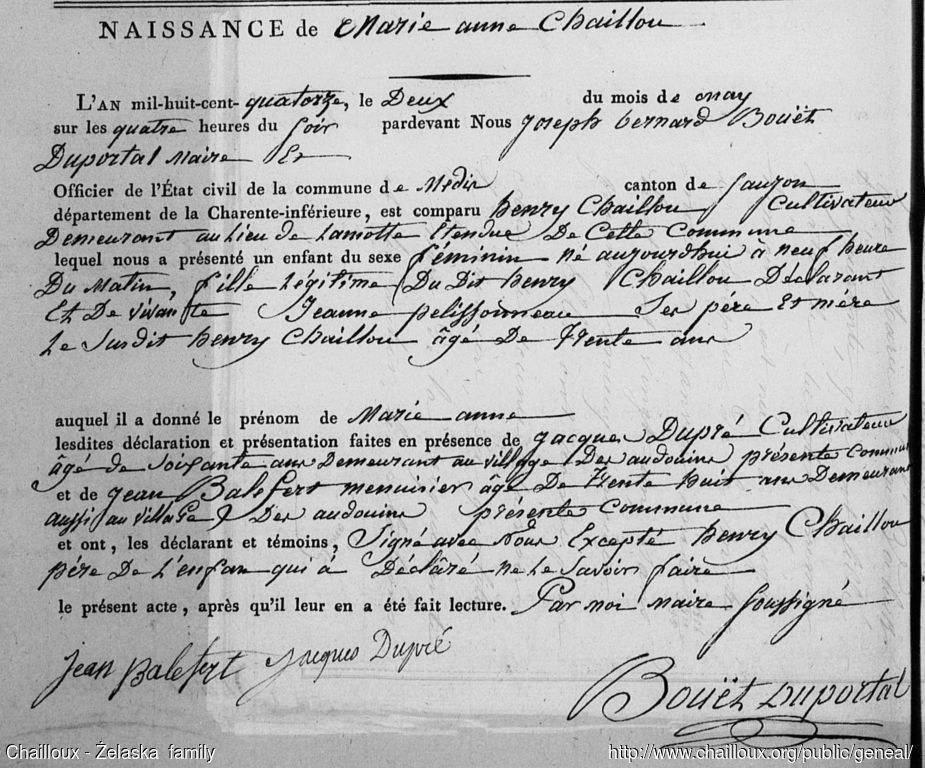 NAISSANCE de Marie anne Chaillou
L'AN mil-huit-cent-quatorze, le Deux du mois de may
sur les quatre heures du soir pardevant Nous Joseph bernard Bouët
Duportal Maire Et
Officier de l'État civil de la commune de Medis canton de Saujon
département de la Charente-inférieure, est comparu henry Chaillou Cultivateur
Demeurant au Lieu de Lamotte Etendue De Cette Commune
lequel nous a présenté un enfant du sexe féminin né aujourdhui à neuf heure
Du Matin, fille Légitime Du Dit henry Chaillou Déclarant
Et De vivante Jeanne pelissonneau Ses pére Et mére
Le Susdit henry Chaillou âgé De Trente ans
auquel il a donné le prénom de Marie anne
lesdites déclaration et présentation faites en présence de Jacques Dupré Cultivateur
âgé de Soixante ans Demeurant au village Des audouins présente Commune
et de Jean Balefert menuisier âgé De Trente huit ans Demeurant
aussi au village Des audouins présente Commune
et ont, les déclarant et témoins, Signé avec Nous Excepté henry Chaillou
pére De L'enfan qui a Déclâré ne Le Savoir faire
le présent acte, après qu'il leur en a été fait lecture. Par moi maire soussigné
Jean Balefert Jacques Dupré
Bouët Duportal
Chailloux - Želaska family http://www.chailloux.org/public/geneal/